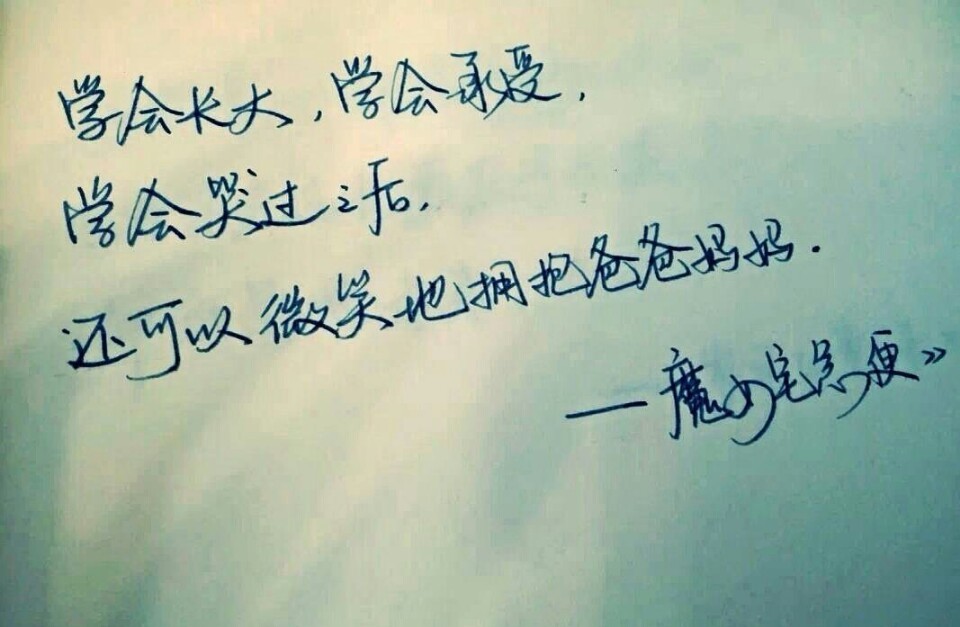 学会长大，学会承受，
学会哭过之后，
还可以微笑地拥抱爸爸妈妈．
—魔女宅急便》